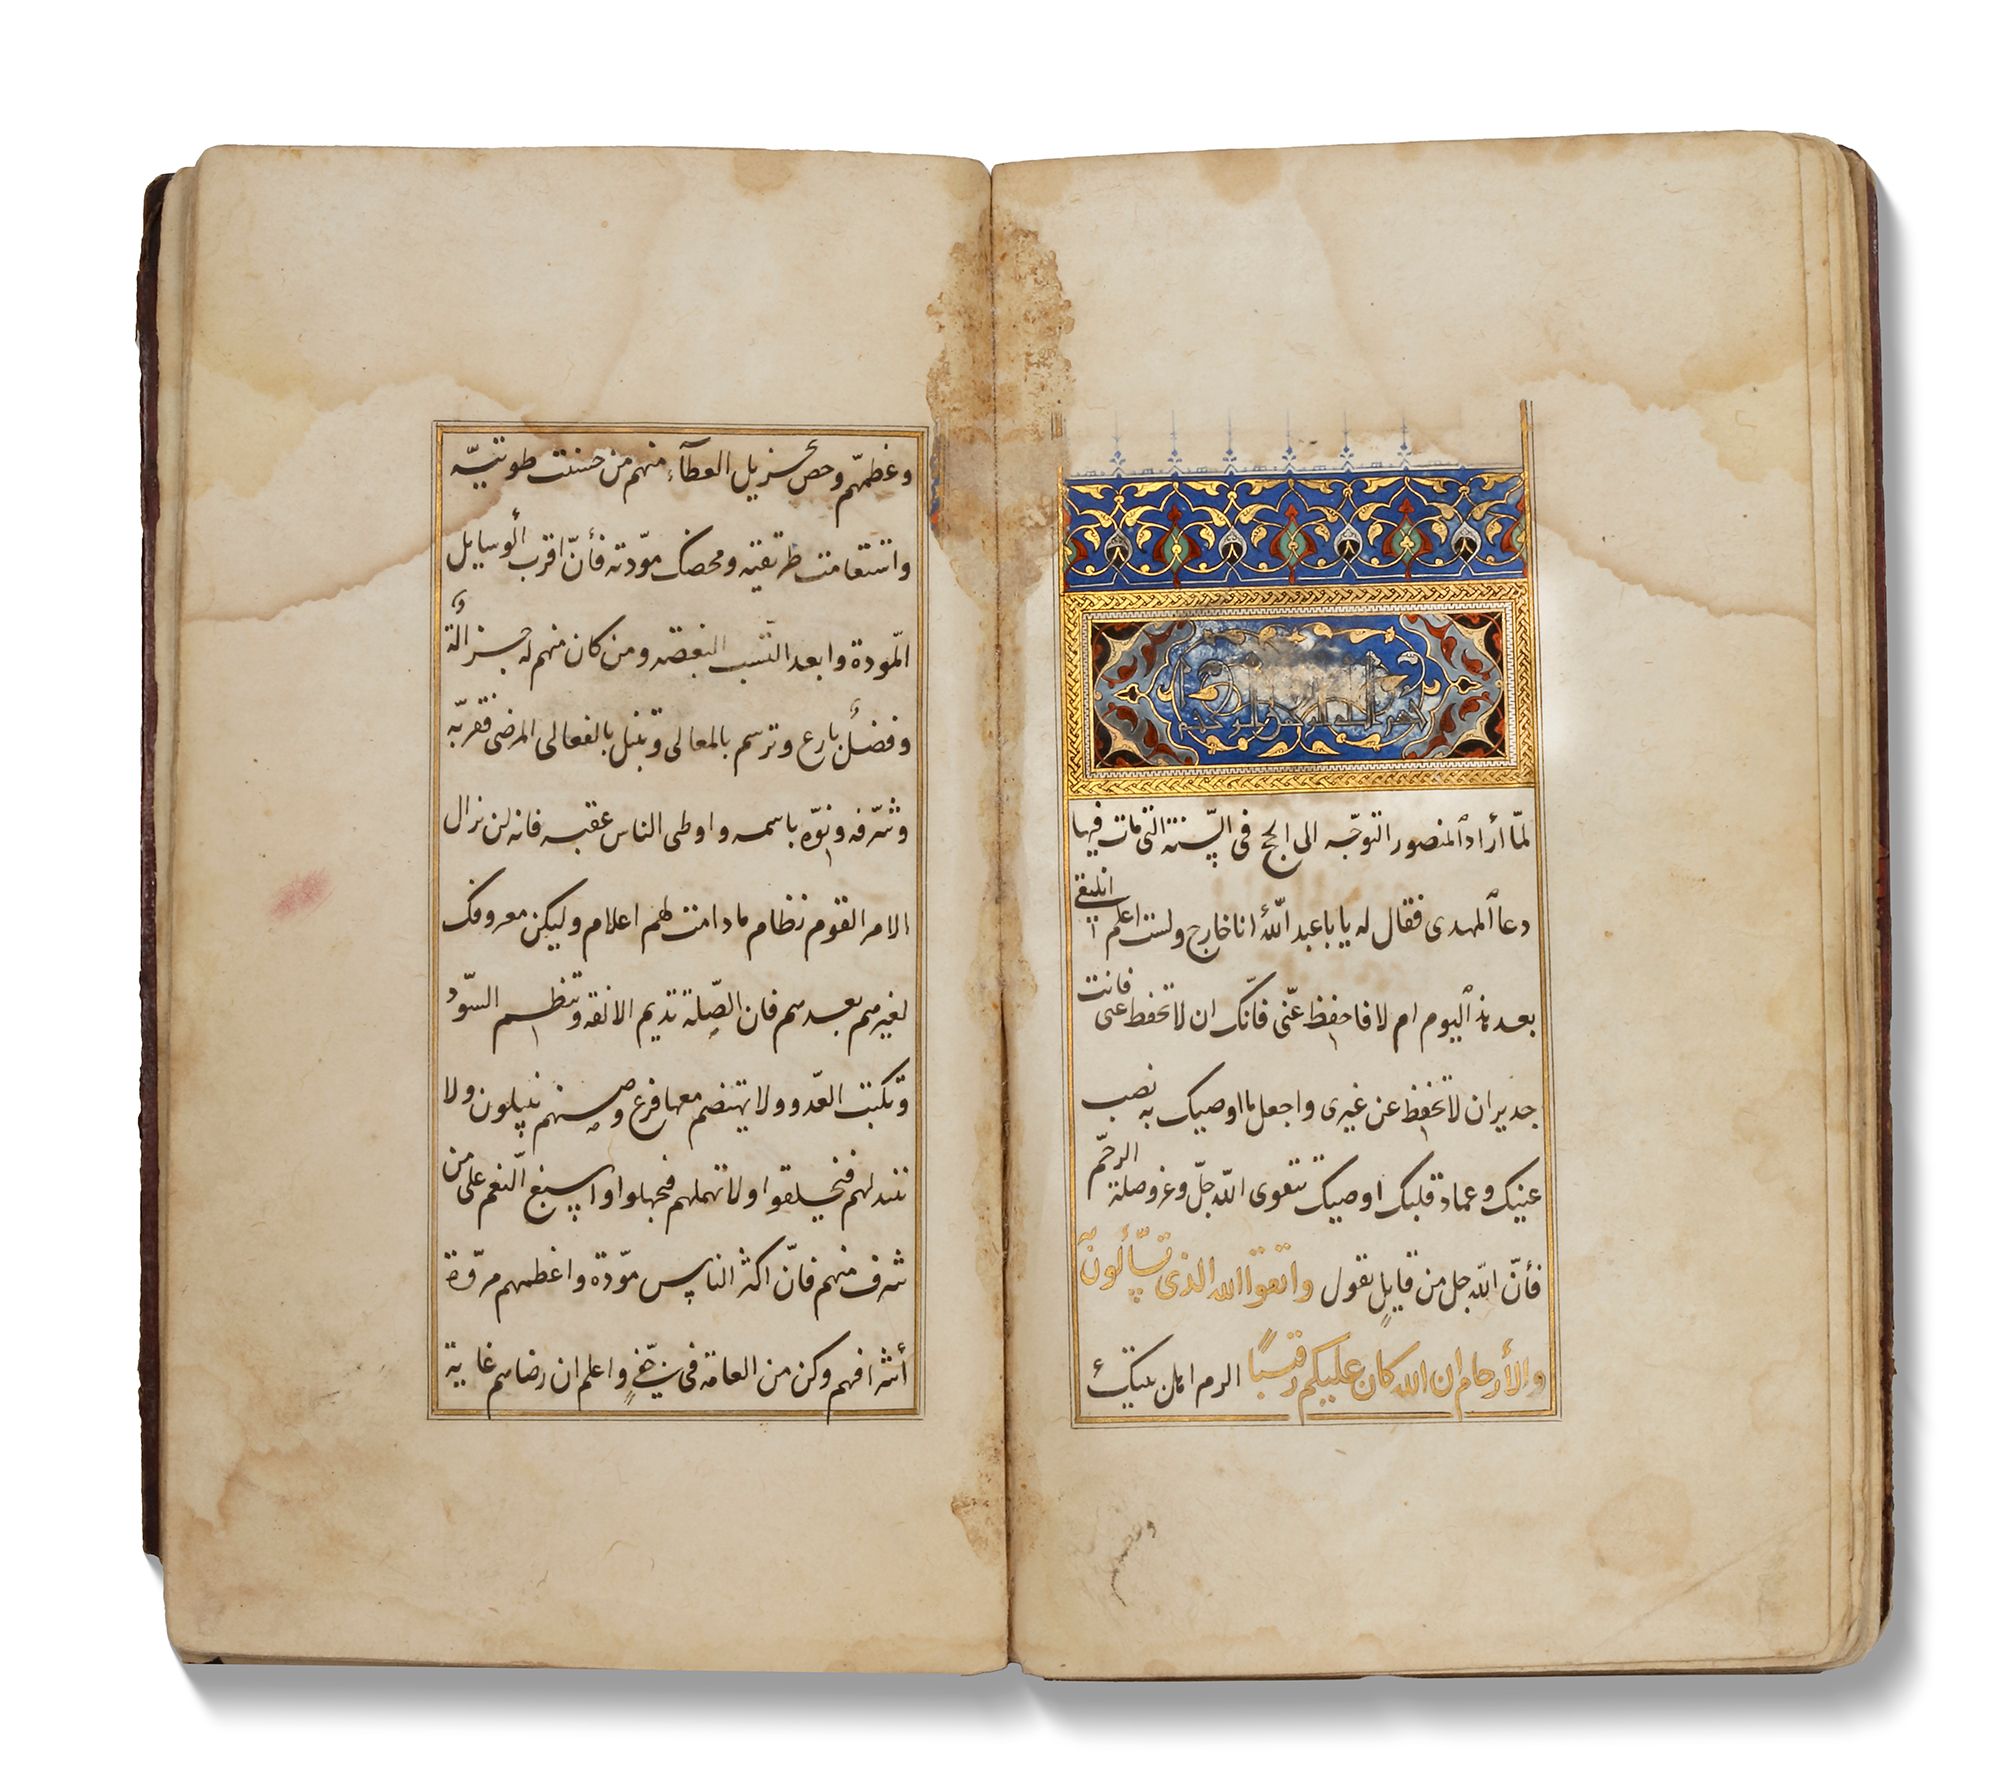 بسم الله الرحمن الرحيم
لمّا أراد المنصور التوجّه الى الحج فى السّنة التى مات فيها
دعا المهدى فقال له يا با عبد اللّه انا خارج ولست اعلم انلتقى
بعد هذا اليوم ام لا فاحفظ عنّى فانّك ان لا تحفظ عنى فانت
جدير ان لا تحفظ عن غيرى واجعل ما اوصيك به نصب
عينيك وعماد قلبك اوصيك بتقوى اللّه جلّ وعز وصلة الرحم
فأنّ اللّه جل من قايلٍ يقول واتقوا الله الذى تسّألون به
والأرحام ان الله كان عليكم رقيبًا الزم اهل بيتك
وعظمهم وخص بجزيل العطآء منهم من حسنت طويتيّه
واستقامت طريقته ومحضك مودّته فأنّ اقرب الوسايل
المودة وابعد النّسب البغضه ومن كان منهم له جزالة
وفضل بارع وترسم بالمعالى وتنبل بالفعالى المرضى فقربّه
وشرّفه ونوّه باسمه واوطى الناس عقبه فانه لن يزال
الامر القوم نظام ما دامت لهم اعلام وليكن معروفك
لغيرهم بعدهم فان الصّلة تديم الالفة وتنظم السوّد
وتكبت العدّو ولا يهتضم معها فرع وصنهم يبلون ولا
تبتدلهم فيخلقوا ولا تهملهم فيجهلوا واسبغ النّعم على من
شرف منهم فانّ اكثر الناس مودّة واعظمهم مروّة
أشرافهم وكن من العامة فى واعلم ان رضاهم غاية